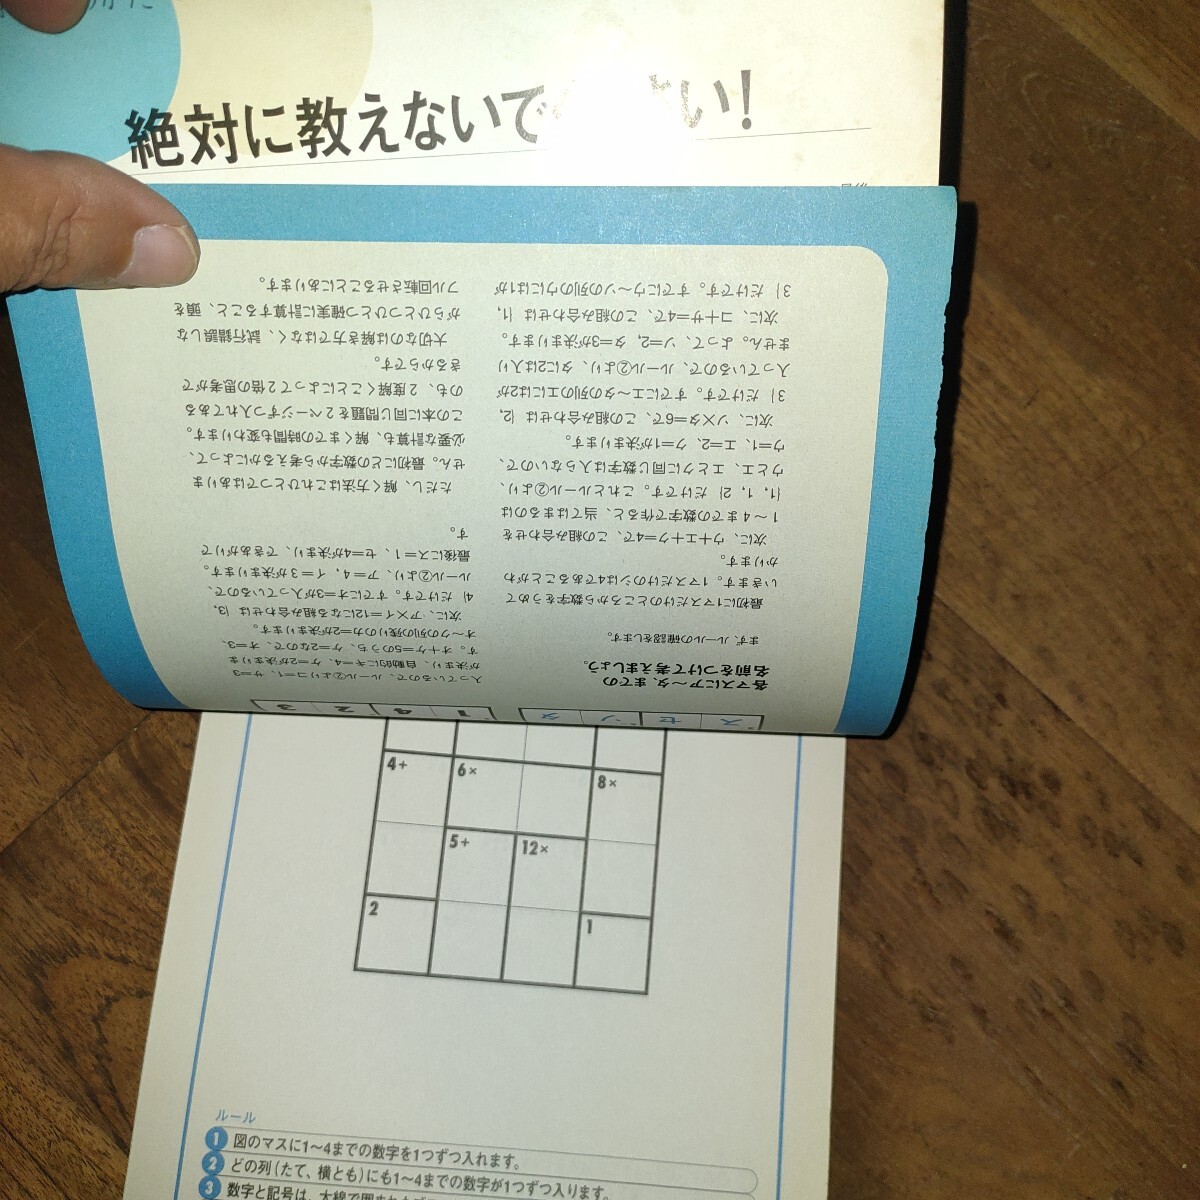 絶対に教えないで
い!
各マスにア〜タまでの
名前をつけて考えましょう。
まず、ルールの確認をします。
最初に1マスだけのところから数字をうめて
いきます。1マスだけのシは4であることがわ
かります。
次に、ウ+エ+ク=4で、この組み合わせを
1〜4までの数字で作ると、当てはまるのは
{1, 1, 2} だけです。これとルール②より、
ウとエ、エとクに同じ数字は入らないので、
ウ=1、エ=2、ク=1が決まります。
次に、ソ×タ=6で、この組み合わせは {2,
3} だけです。すでにエ〜タの列のエには2が
入っているので、ルール②より、タに2は入り
ません。よって、ソ=2、タ=3が決まります。
次に、コ+サ=4で、この組み合わせは {1,
3} だけです。すでにウ〜ソの列のウには1が
入っているので、ルール②よりコ=1、サ=3
が決まり、自動的にキ=4、ケ=2が決まりま
す。オ+ケ=5のうち、ケ=2なので、オ=3、
オ〜クの列の残りのカ=2が決まります。
次に、ア×イ=12になる組み合わせは {3,
4} だけです。すでにオ=3が入っているので、
ルール②より、ア=4、イ=3が決まります。
最後にス=1、セ=4が決まり、できあがりで
す。
ただし、解く方法はこれひとつではありま
せん。最初にどの数字から考えるかによって、
必要な計算も、解くまでの時間も変わります。
この本に同じ問題を2ページずつ入れてある
のも、2度解くことによって2倍の思考がで
きるからです。
大切なのは解き方ではなく、試行錯誤しな
がらひとつひとつ確実に計算すること、頭を
フル回転させることにあります。
ス セ ソ タ
1 4 2 3
4+ 6× 8×
5+ 12×
2 1
ルール
1 図のマスに1〜4までの数字を1つずつ入れます。
2 どの列(たて、横とも)にも1〜4までの数字が1つずつ入ります。
3 数字と記号は、太線で囲まれた